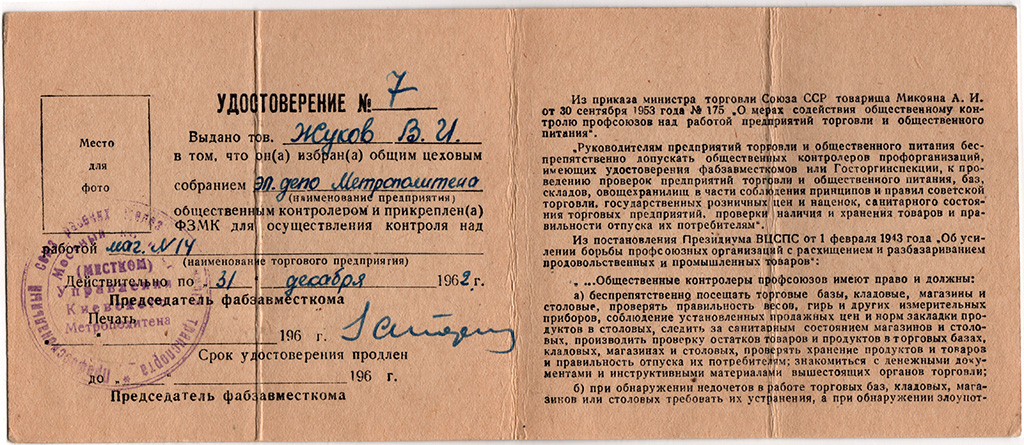 УДОСТОВЕРЕНИЕ № 7
Место
для
фото
Выдано тов. Жуков В. И.
в том, что он(а) избран(а) общим цеховым
собранием эл. депо Метрополитена
(наименование предприятия)
общественным контролером и прикреплен(а)
ФЗМК для осуществления контроля над
работой маг. N 14
(наименование торгового предприятия)
Действительно по „31 декабря 1962 г.
Председатель фабзавместкома
Печать
196 г.
Срок удостоверения продлен
до „ 196 г.
Председатель фабзавместкома
Местный
(МЕСТКОМ)
Управления
Киевского
Метрополитена
Из приказа министра торговли Союза ССР товарища Микояна А. И.
от 30 сентября 1953 года № 175 „О мерах содействия общественному конт-
ролю профсоюзов над работой предприятий торговли и общественного
питания“.
„Руководителям предприятий торговли и общественного питания бес-
препятственно допускать общественных контролеров профорганизаций,
имеющих удостоверения фабзавместкомов или Госторгинспекции, к
проведению проверок предприятий торговли и общественного питания, баз,
складов, овощехранилищ в части соблюдения принципов и правил советской
торговли, государственных розничных цен и наценок, санитарного состоя-
ния торговых предприятий, проверки наличия и хранения товаров и пра-
вильности отпуска их потребителям“.
Из постановления Президиума ВЦСПС от 1 февраля 1943 года „Об уси-
лении борьбы профсоюзных организаций с расхищением и разбазариванием
продовольственных и промышленных товаров“:
„ ...Общественные контролеры профсоюзов имеют право и должны:
а) беспрепятственно посещать торговые базы, кладовые, магазины и
столовые, проверять правильность весов, гирь и других измерительных
приборов, соблюдение установленных продажных цен и норм закладки про-
дуктов в столовых, следить за санитарным состоянием магазинов и столо-
вых, производить проверку остатков товаров и продуктов в торговых базах,
кладовых, магазинах и столовых, проверять хранение продуктов и товаров
и правильность отпуска их потребителям; знакомиться с денежными доку-
ментами и инструктивными материалами вышестоящих органов торговли;
б) при обнаружении недочетов в работе торговых баз, кладовых, мага-
зинов или столовых требовать их устранения, а при обнаружении злоупот-